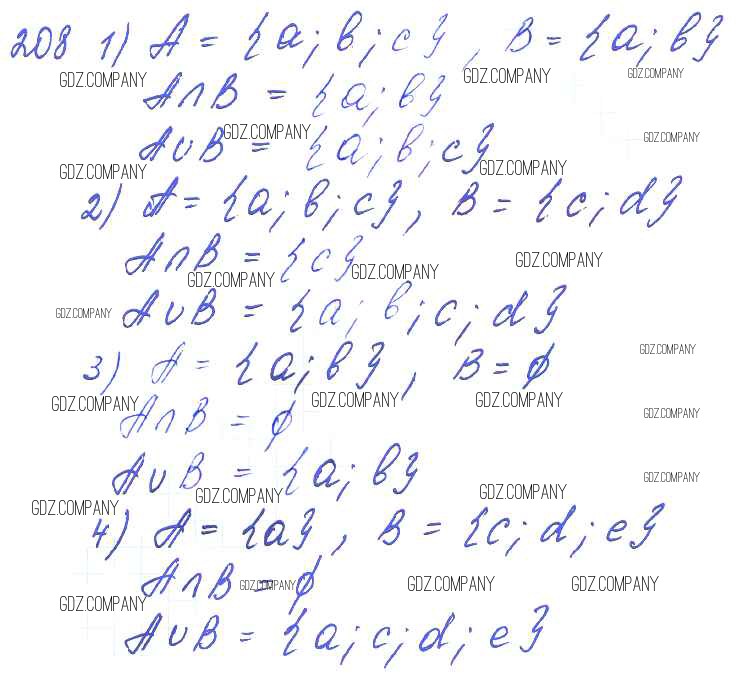 208 1) A = {a; b; c}, B = {a; b}
GDZ.COMPANY GDZ.COMPANY GDZ.COMPANY
A∩B = {a; b}
GDZ.COMPANY GDZ.COMPANY
A∪B = {a; b; c}
GDZ.COMPANY GDZ.COMPANY
2) A = {a; b; c}, B = {c; d}
A∩B = {c}
GDZ.COMPANY GDZ.COMPANY GDZ.COMPANY
GDZ.COMPANY
A∪B = {a; b; c; d}
GDZ.COMPANY
3) A = {a; b}, B = ∅
GDZ.COMPANY GDZ.COMPANY GDZ.COMPANY
A∩B = ∅
GDZ.COMPANY
A∪B = {a; b}
GDZ.COMPANY GDZ.COMPANY GDZ.COMPANY GDZ.COMPANY
4) A = {a}, B = {c; d; e}
A∩B = ∅
GDZ.COMPANY GDZ.COMPANY GDZ.COMPANY
GDZ.COMPANY
A∪B = {a; c; d; e}